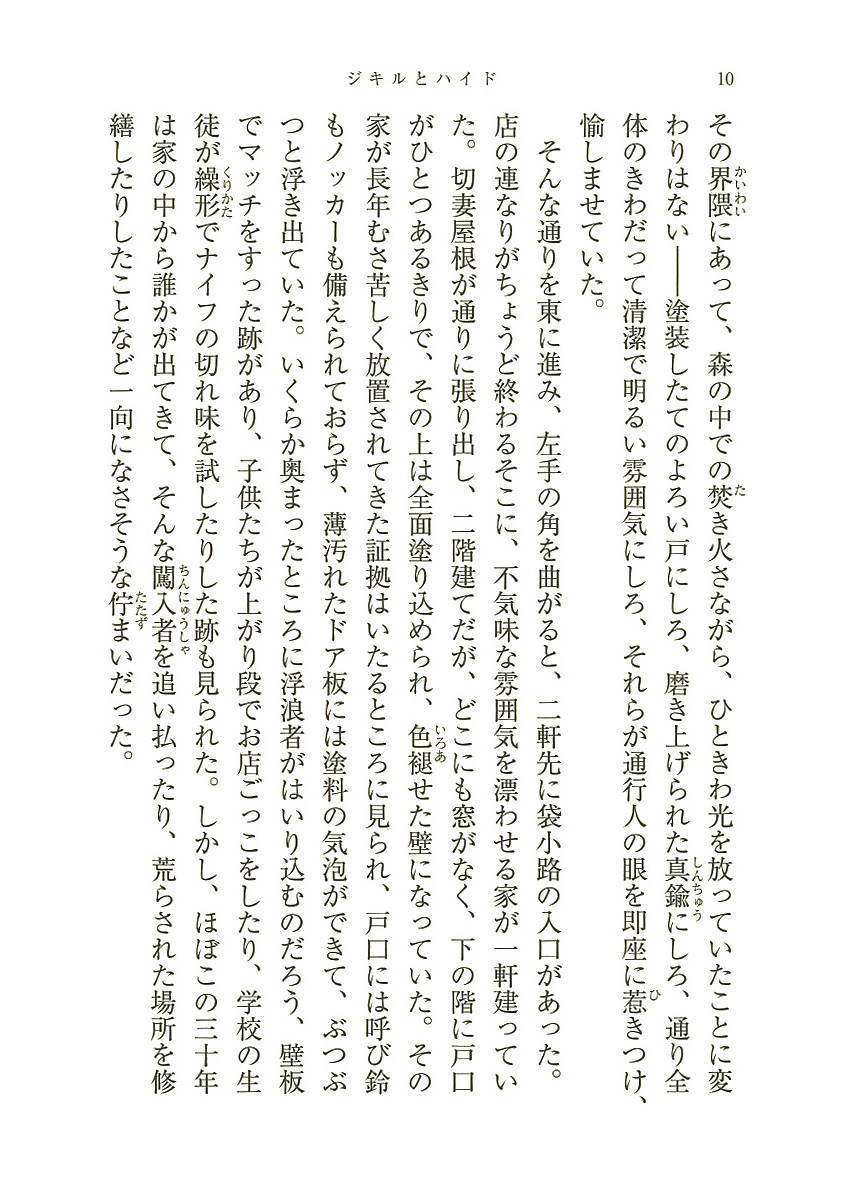 ジキルとハイド
10
その界隈にあって、森の中での焚き火さながら、ひときわ光を放っていたことに変
わりはない――塗装したてのよろい戸にしろ、磨き上げられた真鍮にしろ、通り全
体のきわだって清潔で明るい雰囲気にしろ、それらが通行人の眼を即座に惹きつけ、
愉しませていた。
そんな通りを東に進み、左手の角を曲がると、二軒先に袋小路の入口があった。
店の連なりがちょうど終わるそこに、不気味な雰囲気を漂わせる家が一軒建ってい
た。切妻屋根が通りに張り出し、二階建てだが、どこにも窓がなく、下の階に戸口
がひとつあるきりで、その上は全面塗り込められ、色褪せた壁になっていた。その
家が長年むさ苦しく放置されてきた証拠はいたるところに見られ、戸口には呼び鈴
もノッカーも備えられておらず、薄汚れたドア板には塗料の気泡ができて、ぶつぶ
つと浮き出ていた。いくらか奥まったところに浮浪者がはいり込むのだろう、壁板
でマッチをすった跡があり、子供たちが上がり段でお店ごっこをしたり、学校の生
徒が繰形でナイフの切れ味を試したりした跡も見られた。しかし、ほぼこの三十年
は家の中から誰かが出てきて、そんな闖入者を追い払ったり、荒らされた場所を修
繕したりしたことなど一向になさそうな佇まいだった。